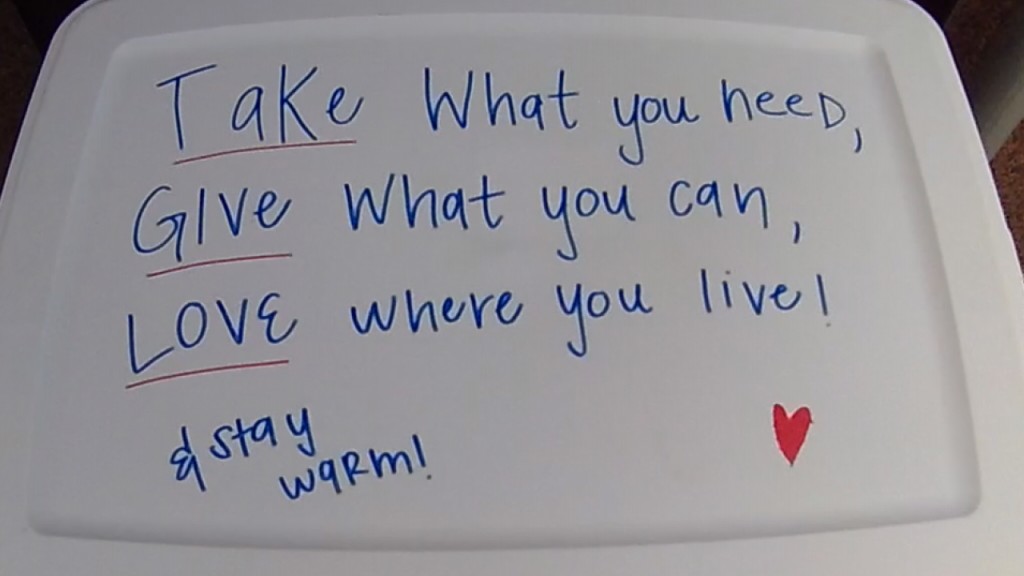 TaKe What you neeD,
GIVe What you can,
LOVE where you live!
& stay
waRm!